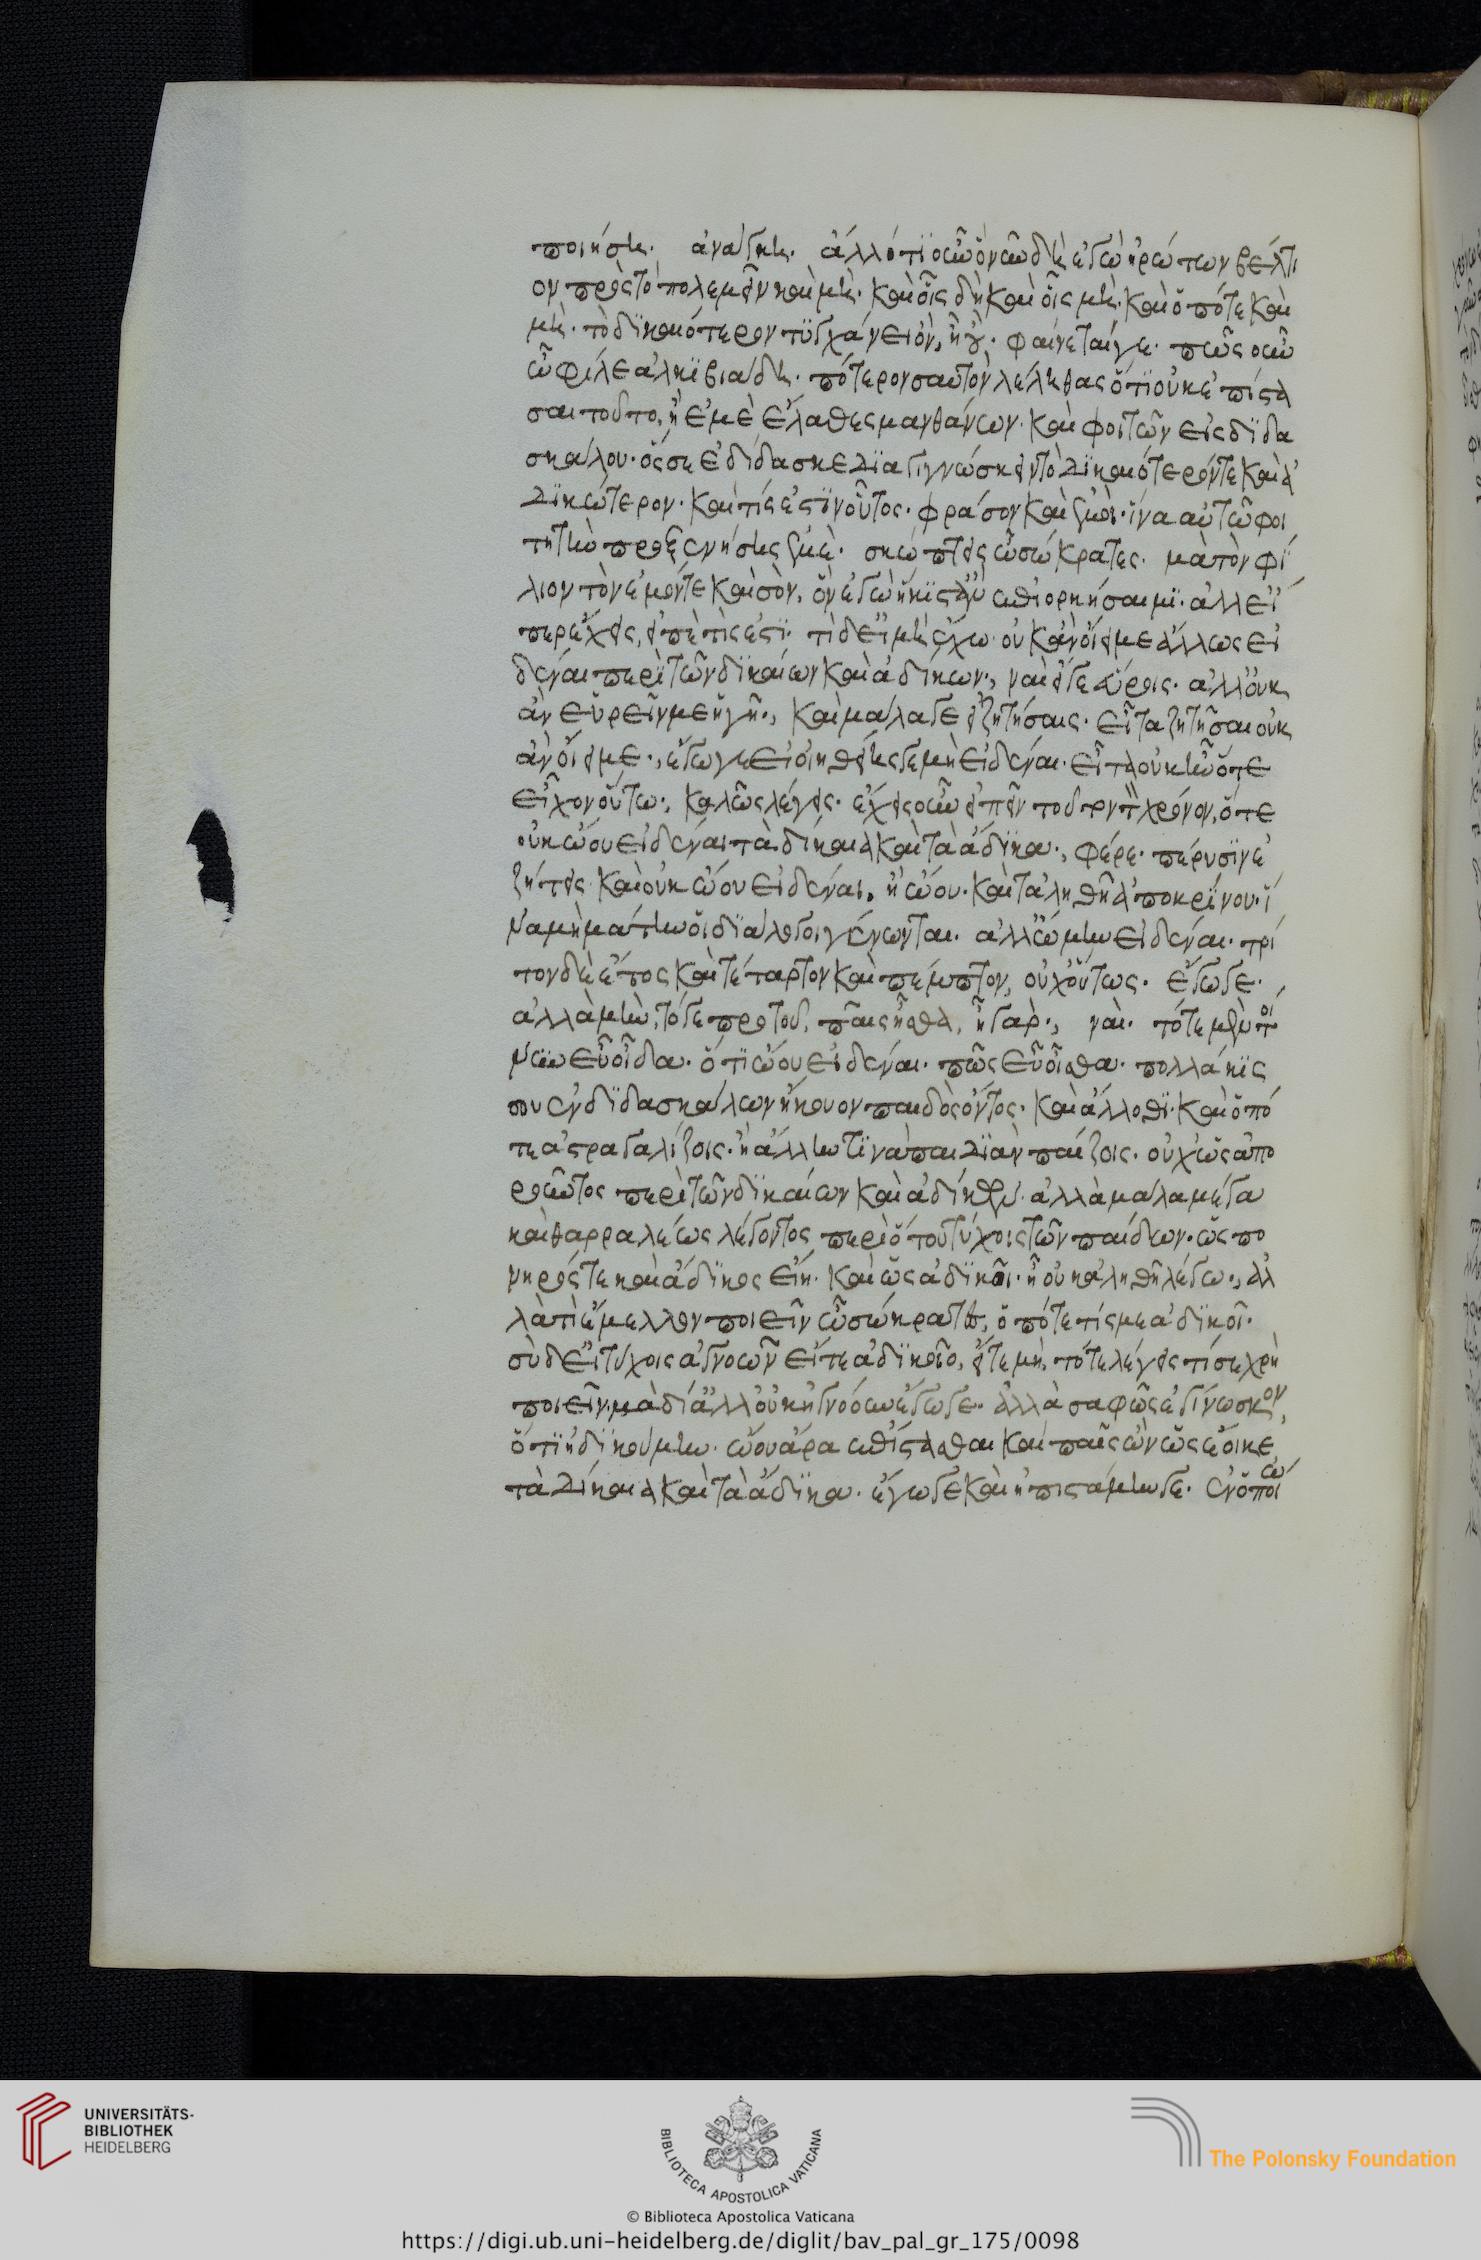 ποιήση. ἀνάγκη. ἄλλό τι οὖν ὃν νῦν δὴ ἐγὼ ἠρώτων βέλτι
ον πρὸς τὸ πολεμεῖν καὶ μὴ. καὶ οἷς δεῖ καὶ οἷς μὴ. καὶ ὁπότε καὶ
μὴ. τὸ δικαιότερον τυγχάνει ὄν, ἢ οὔ. φαίνεταί γε. πῶς οὖν
ὦ φίλε ἀλκιβιάδη. πότερον σαυτὸν λέληθας ὅτι οὐκ ἐπίστα
σαι τοῦτο, ἢ ἐμὲ ἔλαθες μανθάνων. καὶ φοιτῶν εἰς διδα
σκάλου. ὅς σε ἐδίδασκε διαγιγνώσκειν τὸ δικαιότερόν τε καὶ ἀ
δικώτερον. καὶ τίς ἐστιν οὗτος. φράσον καὶ ἐμοὶ. ἵνα αὐτῷ φοι
τητὴν προξενήσης ἐμὲ. σκώπτεις ὦ σώκρατες. μὰ τὸν φί
λιον τὸν ἐμόν τε καὶ σὸν, ὃν ἐγὼ ἥκιστ' ἂν ἐπιορκήσαιμι. ἀλλ' εἴ
περ ἔχεις, εἰπὲ τίς ἐστι. τί δ' εἰ μὴ ἔχω. οὐκ ἂν οἴει με ἄλλως εἰ
δέναι περὶ τῶν δικαίων καὶ ἀδίκων., ναὶ εἴγε εὕροις. ἀλλ' οὐκ
ἂν εὑρεῖν με ἡγῇ., καὶ μάλα γε εἰ ζητήσαις. εἶτα ζητῆσαι οὐκ
ἂν οἴει με., ἔγωγε εἰ οἰηθείης γε μὴ εἰδέναι. εἶτα οὐκ ἦν ὅτε
εἶχον οὕτω., καλῶς λέγεις. ἔχεις οὖν εἰπεῖν τοῦτον τὸν χρόνον, ὅτε
οὐκ ᾤου εἰδέναι τὰ δίκαια καὶ τὰ ἄδικα., φέρε. πέρυσιν ἐ
ζήτεις καὶ οὐκ ᾤου εἰδέναι, ἢ ᾤου. καὶ τἀληθῆ ἀποκρίνου. ἵ
να μὴ μάτην οἱ διάλογοι γένωνται. ἀλλ' ᾤμην εἰδέναι. τρί
τον δὲ ἔτος καὶ τέταρτον καὶ πέμπτον, οὐχ οὕτως. ἔγωγε.
ἀλλὰ μὴν, τόγε πρὸ τοῦ, παῖς ἦσθα, ἦ γὰρ., ναὶ. τότε μὲν τοί
νυν εὖ οἶδα. ὅτι ᾤου εἰδέναι. πῶς εὖ οἶσθα. πολλάκις
σου ἐν διδασκάλων ἤκουον παιδὸς ὄντος. καὶ ἄλλοθι. καὶ ὁπό
τε ἀστραγαλίζοις. ἢ ἄλλην τινὰ παιδιὰν παίζοις. οὐχ ὡς ἀπο
ροῦντος περὶ τῶν δικαίων καὶ ἀδίκων. ἀλλὰ μάλα μέγα
καὶ θαρραλέως λέγοντος περὶ ὅτου τύχοις τῶν παίδων. ὡς πο
νηρός τε καὶ ἄδικος εἴη. καὶ ὡς ἀδικοῖ. ἢ οὐκ ἀληθῆ λέγω., ἀλ
λὰ τί ἔμελλον ποιεῖν ὦ σώκρατες, ὁπότε τίς με ἀδικοῖ.
σὺ δ' εἰ τύχοις ἀγνοῶν εἴτε ἀδικοῖο, εἴτε μὴ, τότε λέγεις τί σε χρὴ
ποιεῖν, μὰ δί' ἀλλ' οὐκ ἠγνόουν ἔγωγε. ἀλλὰ σαφῶς ἐγίνωσκον,
ὅτι ἠδικούμην. ᾤου ἄρα ἐπίστασθαι καὶ παῖς ὢν ὡς ἔοικε
τὰ δίκαια καὶ τὰ ἄδικα. ἔγωγε καὶ ἠπιστάμην γε. ἐν ὁποίω
UNIVERSITÄTS-
BIBLIOTHEK
HEIDELBERG
BIBLIOTECA APOSTOLICA VATICANA
The Polonsky Foundation
© Biblioteca Apostolica Vaticana
https://digi.ub.uni-heidelberg.de/diglit/bav_pal_gr_175/0098